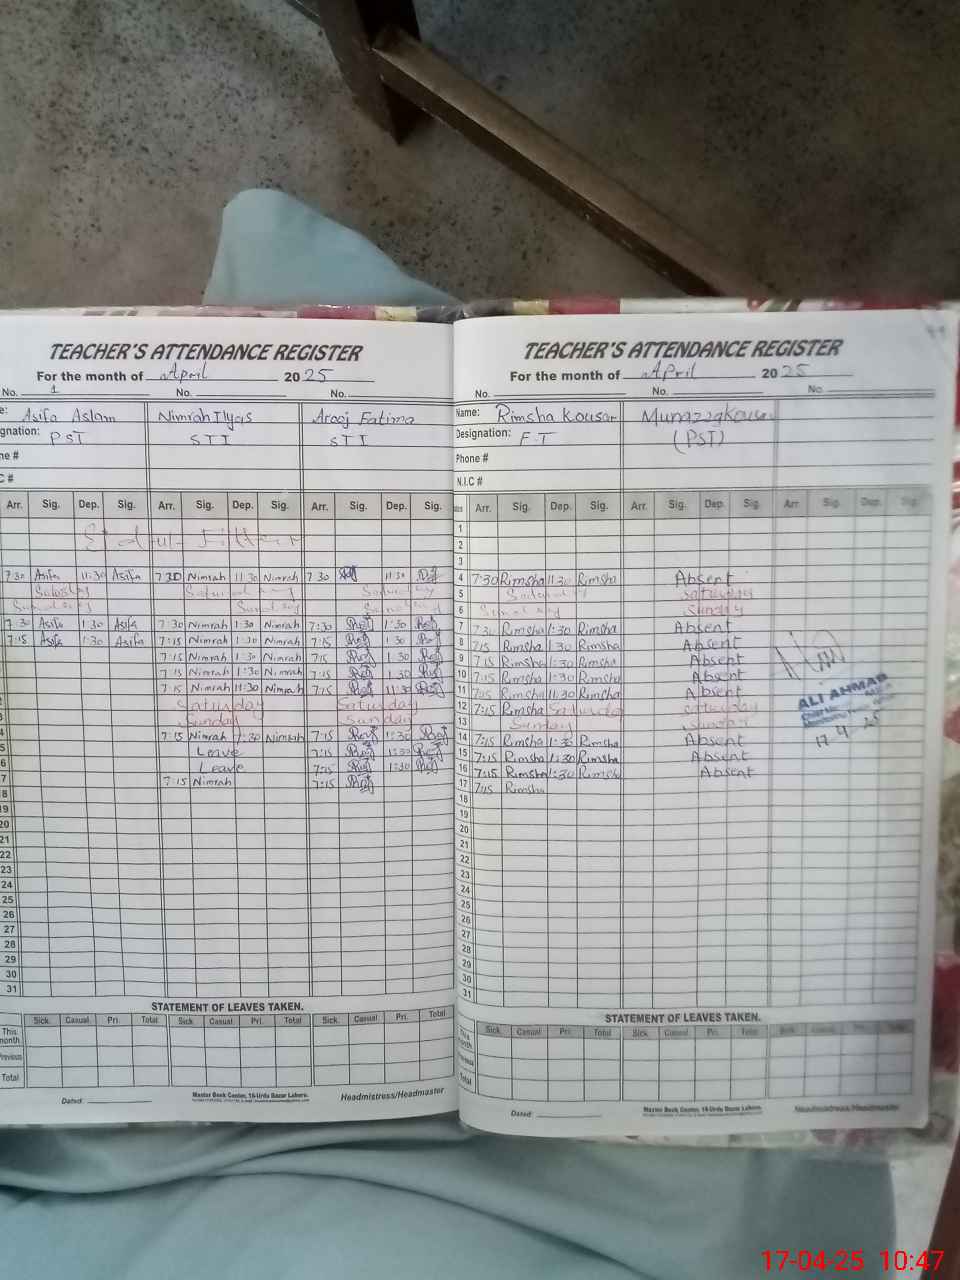 TEACHER'S ATTENDANCE REGISTER
For the month of April 2025
No. 1 No. No.
e: Asifa Aslam Nimrah Ilyas Arooj Fatima
gnation: PST STI STI
ne #
C #
Arr. Sig. Dep. Sig. Arr. Sig. Dep. Sig. Arr. Sig. Dep. Sig.
7:30 Asifa 11:30 Asifa 7:30 Nimrah 11:30 Nimrah 7:30 11:30
Saturday Saturday
Sunday Sunday Sunday
7:30 Asifa 1:30 Asifa 7:30 Nimrah 1:30 Nimrah 7:30 1:30
7:15 Asifa 1:30 Asifa 7:15 Nimrah 1:30 Nimrah 7:15 1:30
7:15 Nimrah 1:30 Nimrah 7:15 1:30
7:15 Nimrah 1:30 Nimrah 7:15 1:30
7:15 Nimrah 11:30 Nimrah 7:15 11:30
Saturday Saturday
Sunday Sunday
4 7:15 Nimrah 1:30 Nimrah 7:15 1:30
5 Leave 7:15 1:30
6 Leave 7:15 1:30
7 7:15 Nimrah 7:15
8
19
20
21
22
23
24
25
26
27
28
29
30
31
STATEMENT OF LEAVES TAKEN.
Sick. Casual. Pri. Total Sick. Casual. Pri. Total Sick. Casual. Pri. Total
This month
Previous
Total
Dated: Master Book Center, 16-Urdu Bazar Lahore. Headmistress/Headmaster
TEACHER'S ATTENDANCE REGISTER
For the month of April 2025
No. No. No.
Name: Rimsha Kousar
Designation: F.T (PST)
Phone #
N.I.C #
Arr. Sig. Dep. Sig. Arr. Sig. Dep. Sig. Arr. Sig. Dep. Sig.
1
2
3
4 7:30 Rimsha 11:30 Rimsha Absent
5 Saturday Saturday
6 Sunday Sunday
7 7:30 Rimsha 1:30 Rimsha Absent
8 7:15 Rimsha 1:30 Rimsha Absent
9 7:15 Rimsha 1:30 Rimsha Absent
10 7:15 Rimsha 1:30 Rimsha Absent
11 7:15 Rimsha 11:30 Rimsha Absent
12 7:15 Rimsha Saturday Saturday
13 Sunday Sunday
14 7:15 Rimsha 1:30 Rimsha Absent
15 7:15 Rimsha 1:30 Rimsha Absent
16 7:15 Rimsha 1:30 Rimsha Absent
17 7:15 Rimsha
18
19
20
21
22
23
24
25
26
27
28
29
30
31
ALI AHMAD
17.4.25
STATEMENT OF LEAVES TAKEN.
Sick. Casual. Pri. Total Sick. Casual. Pri. Total
This month
Previous
Total
Dated: Master Book Center, 16-Urdu Bazar Lahore. Headmistress/Headmaster
17-04-25 10:47